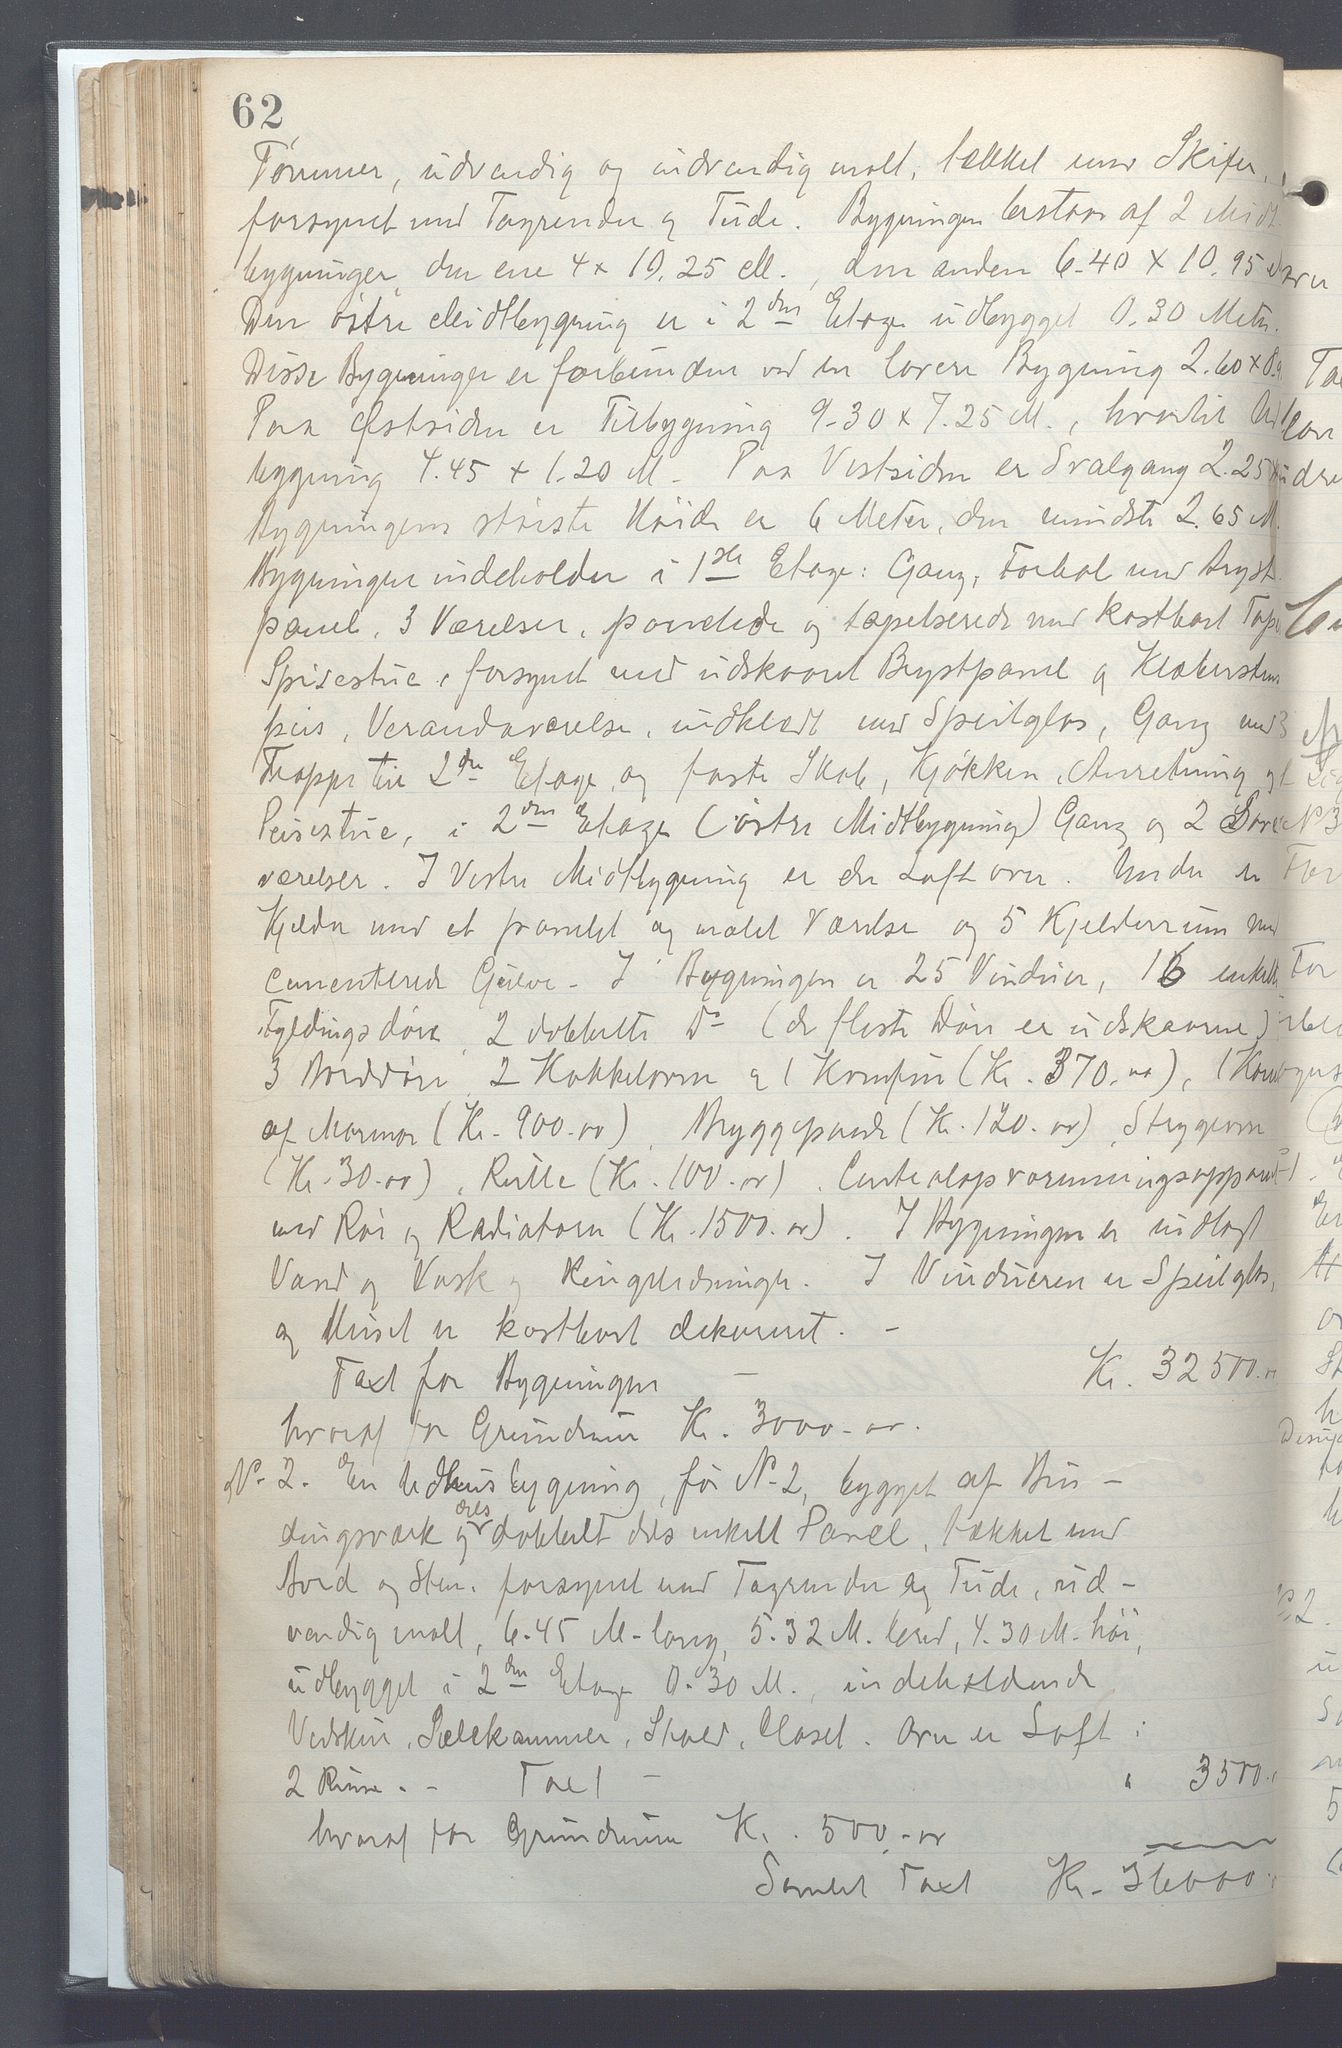 62
Tømmer, udvendig og indvendig malt, tækket med Skifer,
forsynet med Tagrender og Tude. Bygningen bestaar af 2 Midt
bygninger, den ene 4 x 10.25 M., den anden 6.40 x 10.95
Den østre Midtbygning er i 2den Etage udbygget 0.30 Meter.
Disse Bygninger er forbunden ved en lavere Bygning 2.60 x
Paa Østsiden er Tilbygning 9.30 x 7.25 M., hvortil Ud
bygning 4.45 x 1.20 M. Paa Vestsiden er Svalgang 2.25
Bygningens største Høide er 6 Meter, den mindste 2.65 M.
Bygningen indeholder i 1ste Etage: Gang, Forhal med Bryst
panel, 3 Værelser, panelede og tapetserede med kostbart Tape
Spisestue, forsynet med udskaaret Brystpanel og Klæbersten
peis, Verandaværelse, indklædt med Speilglas, Gang med
Trappe til 2den Etage og faste Skab, Kjøkken, Anretning og
Peisestue, i 2den Etage (østre Midtbygning) Gang og 2 Sove
værelser. I Vestre Midtbygning er der Loft over. Under er
Kjelder med et panelet og malet Værelse og 5 Kjelderrum med
cementerede Gulve. I Bygningen er 25 Vinduer, 16 enkelte
Fyldingsdøre, 2 dobbelte Do (de fleste Døre er udskaarne)
3 Borddøre, 2 Kakkelovne og 1 Komfur (Kr. 370.00), 1 Kamin
af Marmor (Kr. 900.00), Bryggepande (Kr. 120.00), Strygeovn
(Kr. 30.00), Rulle (Kr. 100.00), Centralopvarmningsapparat
med Rør og Radiatorer (Kr. 1500.00). I Bygningen er indlagt
Vand og Vask og Ringeledninger. I Vinduerne er Speilglas,
og Huset er kostbart dekoreret. -
Taxt for Bygningen - Kr. 32500.00
hvoraf for Grundmur Kr. 3000.00.
No 2. En Udhusbygning, før No 2, bygget af Bin-
dingsværk og dels dobbelt dels enkelt Panel, tækket med
Bord og Sten, forsynet med Tagrender og Tude, ud-
vendig malt, 6.45 M. lang, 5.32 M. bred, 4.30 M. høi,
udbygget i 2den Etage 0.30 M., indeholdende
Vedskur, Selekammer, Stald, Closet. Over er Loft i
2 Rum. - Taxt - " 3500.
hvoraf for Grundmur Kr. 500.00
Samlet Taxt Kr. 36000.